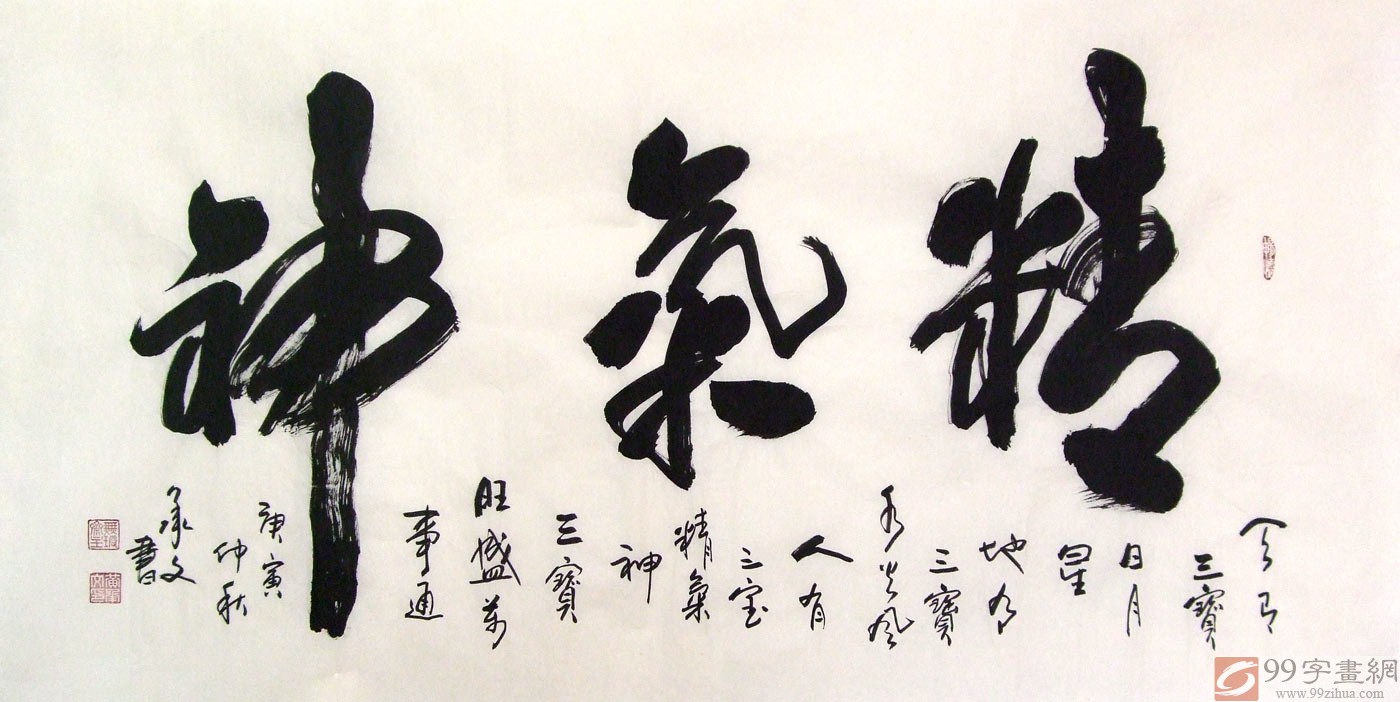 精氣神
天有
三寶
日月
星
地有
三寶
水火风
人有
三宝
精氣
神
三寶
旺盛萬
事通
庚寅
仲秋
承文
書
99字畫網
www.99zihua.com